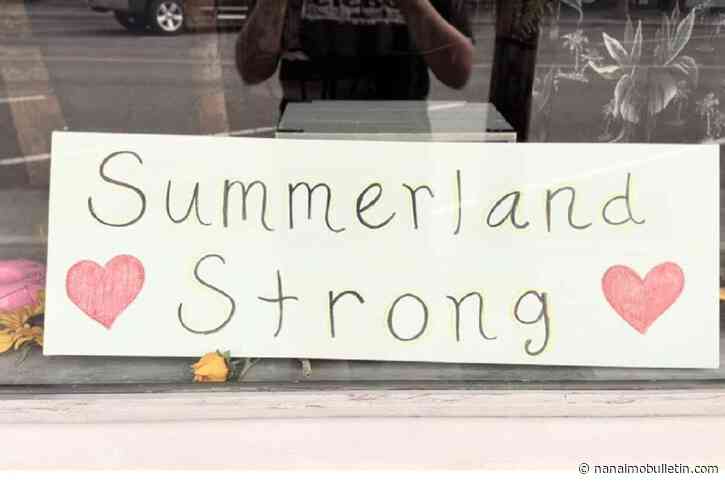 Summerland
Strong
© nanaimobulletin.com